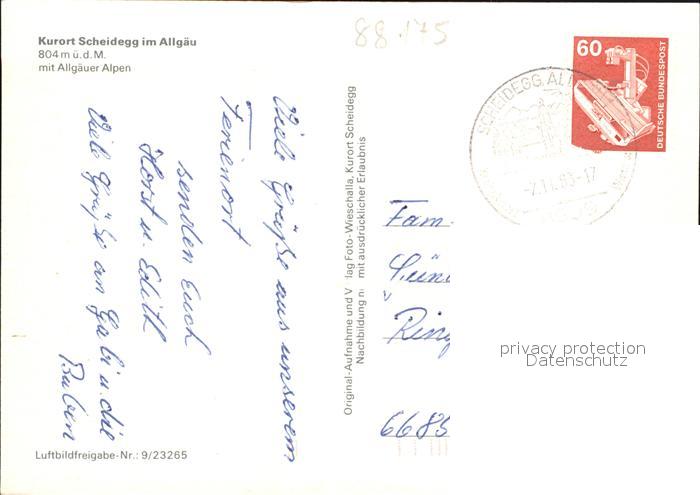 88.175
Kurort Scheidegg im Allgäu
804 m ü. d. M.
mit Allgäuer Alpen
Viele Grüße aus unserem
Ferienort
senden Euch
Horst u. Edith
Viele Grüße an Gabi u. die
Buben
Luftbildfreigabe-Nr.: 9/23265
Original-Aufnahme und V lag Foto-Wieschalla, Kurort Scheidegg
Nachbildung n mit ausdrücklicher Erlaubnis
60
DEUTSCHE BUNDESPOST
SCHEIDEGG, AL
-17
Fam.
Ring
6683
privacy protection
Datenschutz